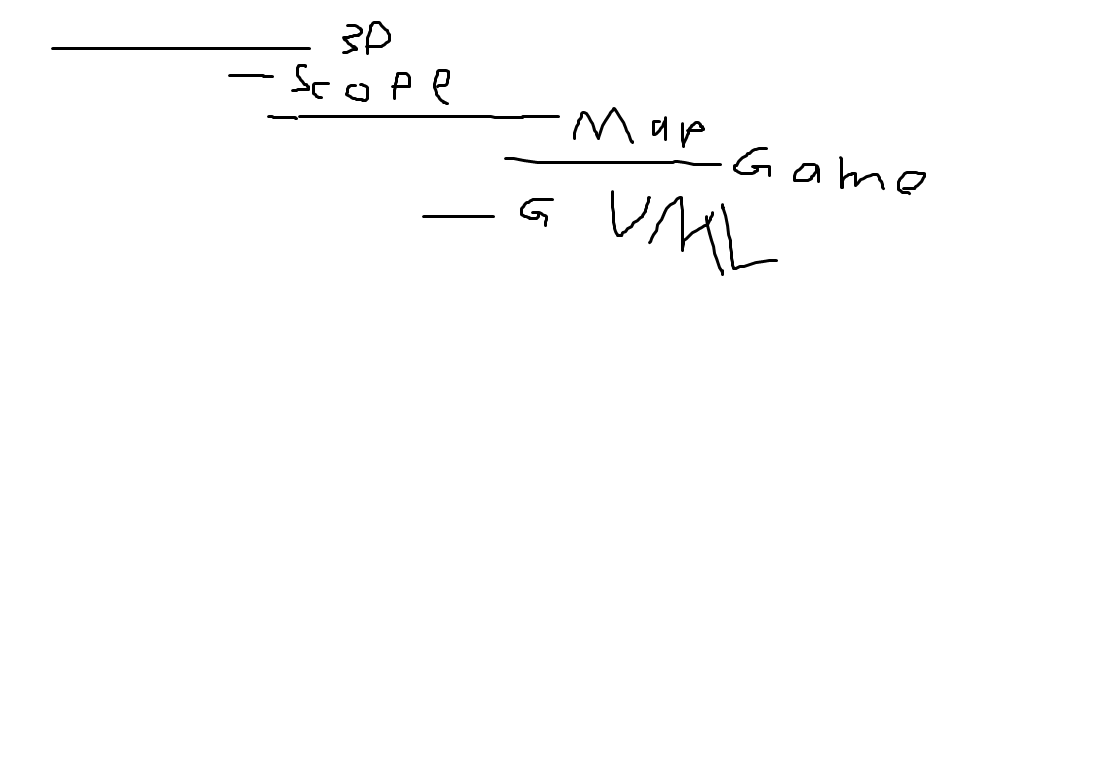 3D
Scope
Map
Game
G UML